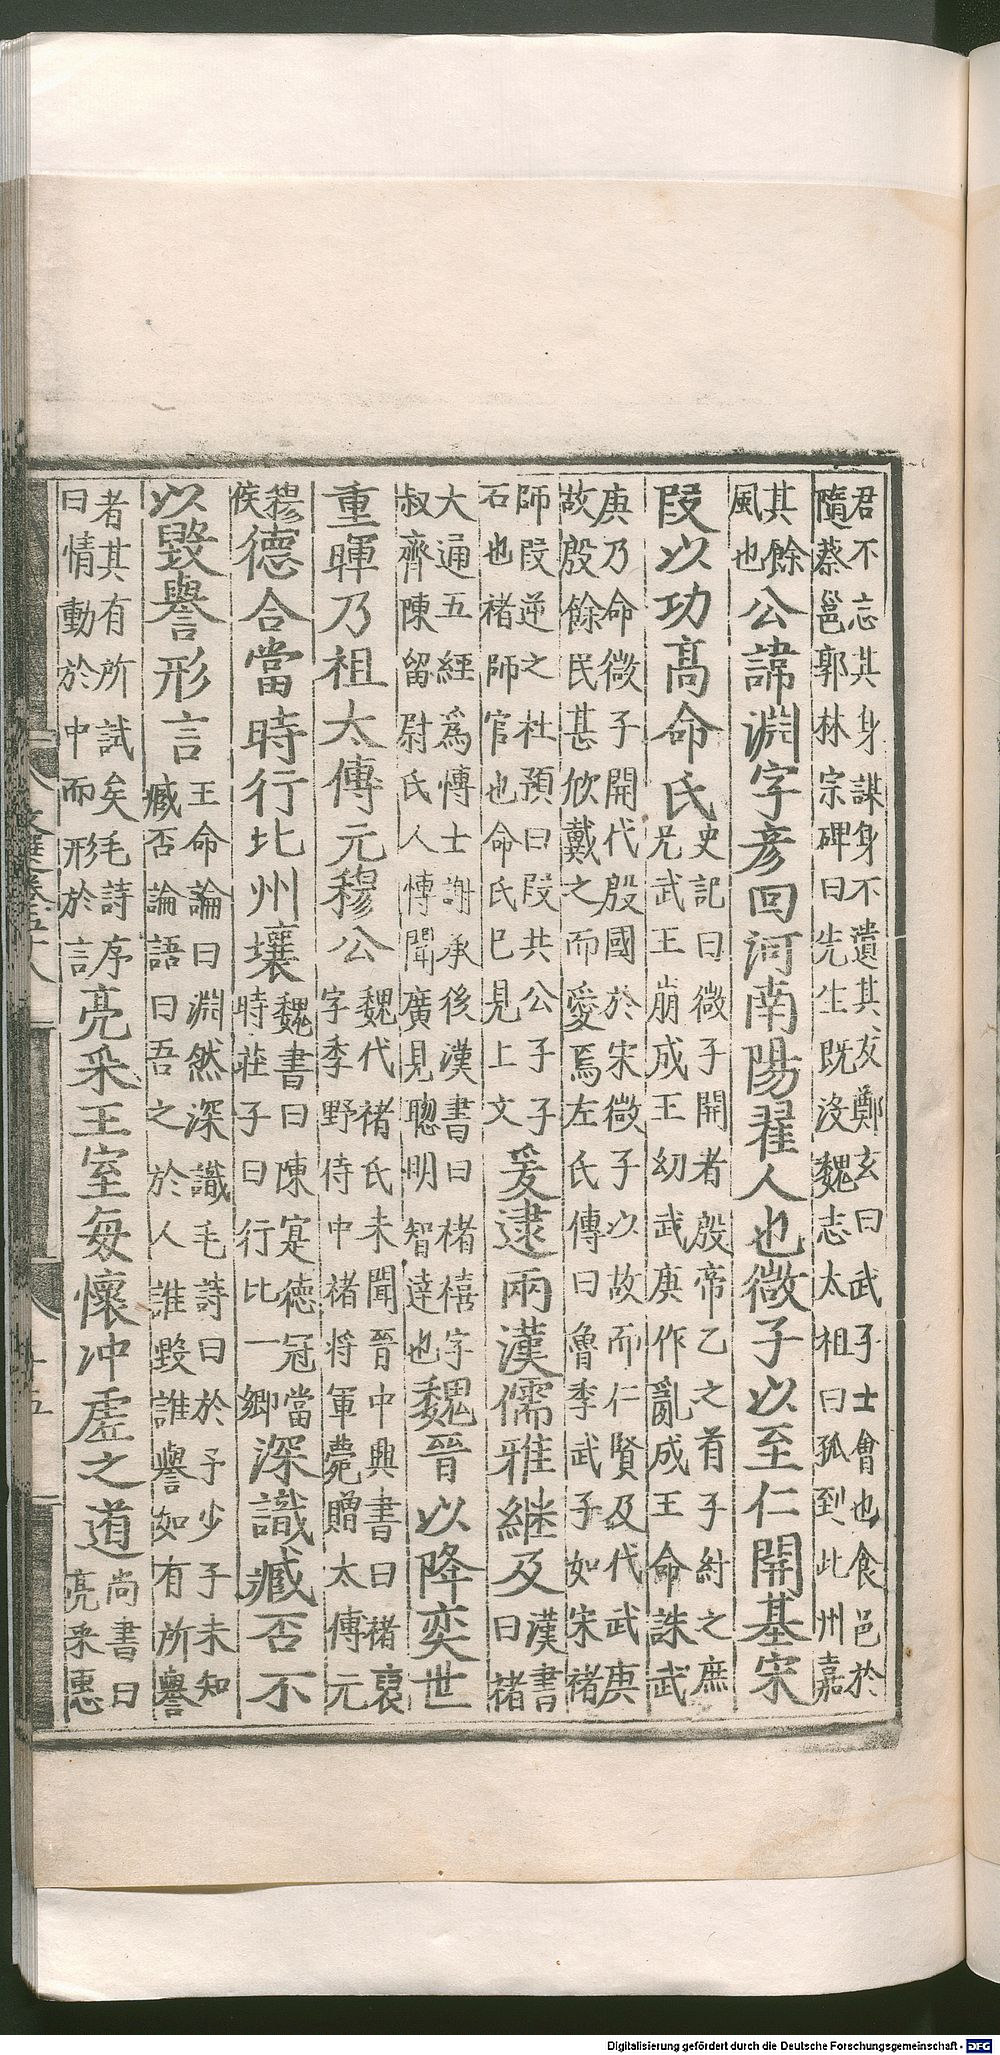 君不忘其身謀身不遺其友鄭玄曰武子士會也食邑於
隨蔡邕郭林宗碑曰先生既沒魏志太祖曰孤到此州嘉
其餘
風也
公諱淵字彥回河南陽翟人也微子以至仁開基宋
段以功高命氏
史記曰微子開者殷帝乙之首子紂之庶
兄武王崩成王幼武庚作亂成王命誅武
庚乃命微子開代殷國於宋微子以故而仁賢及代武庚
故殷餘民甚欣戴之而愛焉左氏傳曰魯季武子如宋褚
師段逆之杜預曰段共公子子
石也褚師官也命氏已見上文
爰逮兩漢儒雅継及
漢書
曰褚
大通五經為愽士謝承後漢書曰楮禧字
叔齊陳留尉氏人愽聞廣見聰明智達也
魏晉以降奕世
重暉乃祖太傅元穆公
魏代褚氏未聞晉中興書曰褚裒
字季野侍中褚將軍薨贈太傅元
穆
侯
德合當時行比州壤
魏書曰陳寔德冠當
時莊子曰行比一鄉
深識臧否不
以毀譽形言
王命論曰淵然深識毛詩曰於予少子未知
臧否論語曰吾之於人誰毀誰譽如有所譽
者其有所試矣毛詩序
曰情動於中而形於言
亮采王室每懷沖虛之道
尚書曰
亮采惠
文選卷五十八
十五
Digitalisierung gefördert durch die Deutsche Forschungsgemeinschaft - DFG